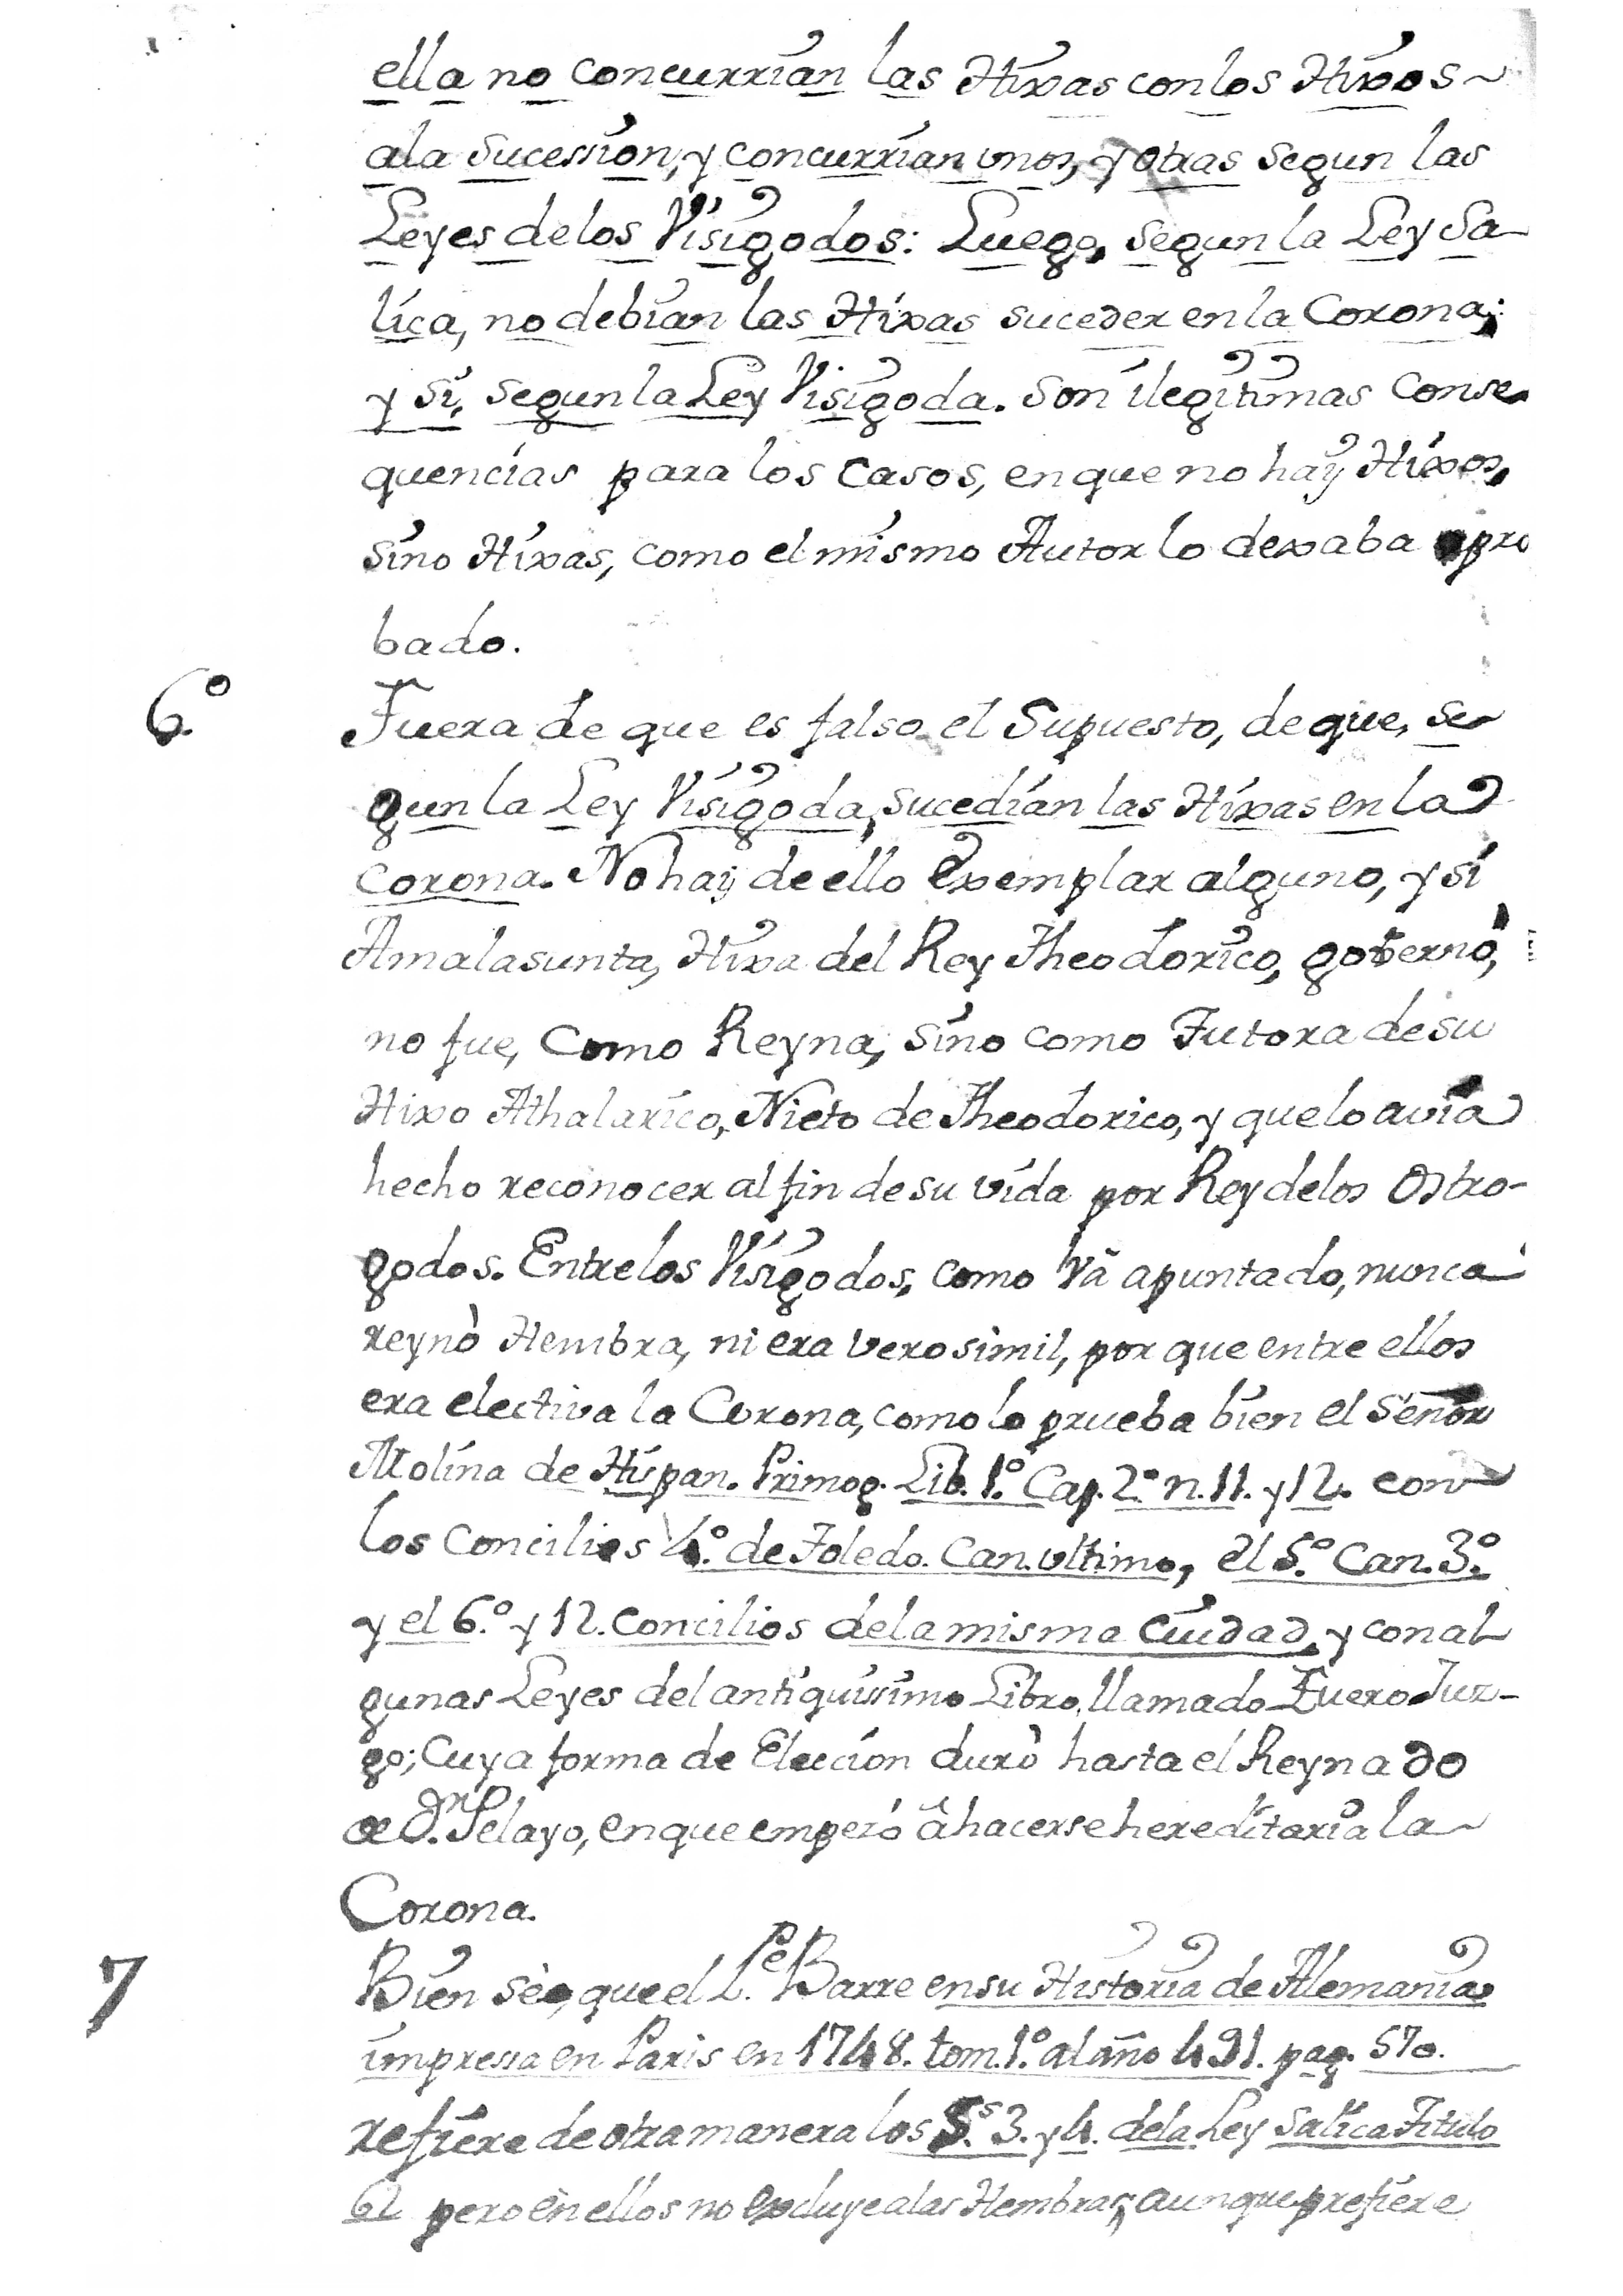 ella no concurrian las Hixas con los Hixos~
ala sucession, y concurrian unos, y otras segun las
Leyes delos Visigodos: Luego, segun la Ley Sa-
lica, no debian las Hixas suceder en la Corona;
y si, segun la Ley Visigoda. Son ilegitimas conse-
quencias para los casos, en que no haÿ Hixos,
sino Hixas, como el mismo Autor lo dexaba apro
bado.
6.º Fuera de que es falso el Supuesto, de que, se-
gun la Ley Visigoda, sucedian las Hixas en la
Corona. No haij de ello Exemplar alguno, y si
Amalasunta, Hixa del Rey Theodorico, gobernò,
no fue, como Reyna, sino como Tutora de su
Hixo Athalarico, Nieto de Theodorico, y quelo avia
hecho reconocer al fin de su vida por Rey delos Ostro-
godos. Entrelos Visigodos, como vâ apuntado, nunca
reynò Hembra, ni era verosimil, por que entre ellos
era electiva la Corona, como lo prueba bien el Señor
Molina de Hispan. Primog. Lib. 1.º Cap. 2.º n. 11. y 12. con
los Concilios 4.º de Toledo. Can. ultimo, el 5.º Can. 3.º
y el 6.º y 12. Concilios dela misma Ciudad, y con al-
gunas Leyes del antiquisimo Libro, llamado Fuero Juz-
go; Cuya forma de Eleccion durò hasta el Reynado
de Dn. Pelayo, en que empezó â hacerse hereditaria la~
Corona.
7 Bien sè, que el P.e Barre en su Historia de Alemania
impressa en Paris en 1748. tom. 1.º al año 491. pag. 570.
refiere de otra manera los §.s 3. y 4. dela Ley Salica Titulo
62 pero en ellos no excluye alas Hembras, aunque prefiere